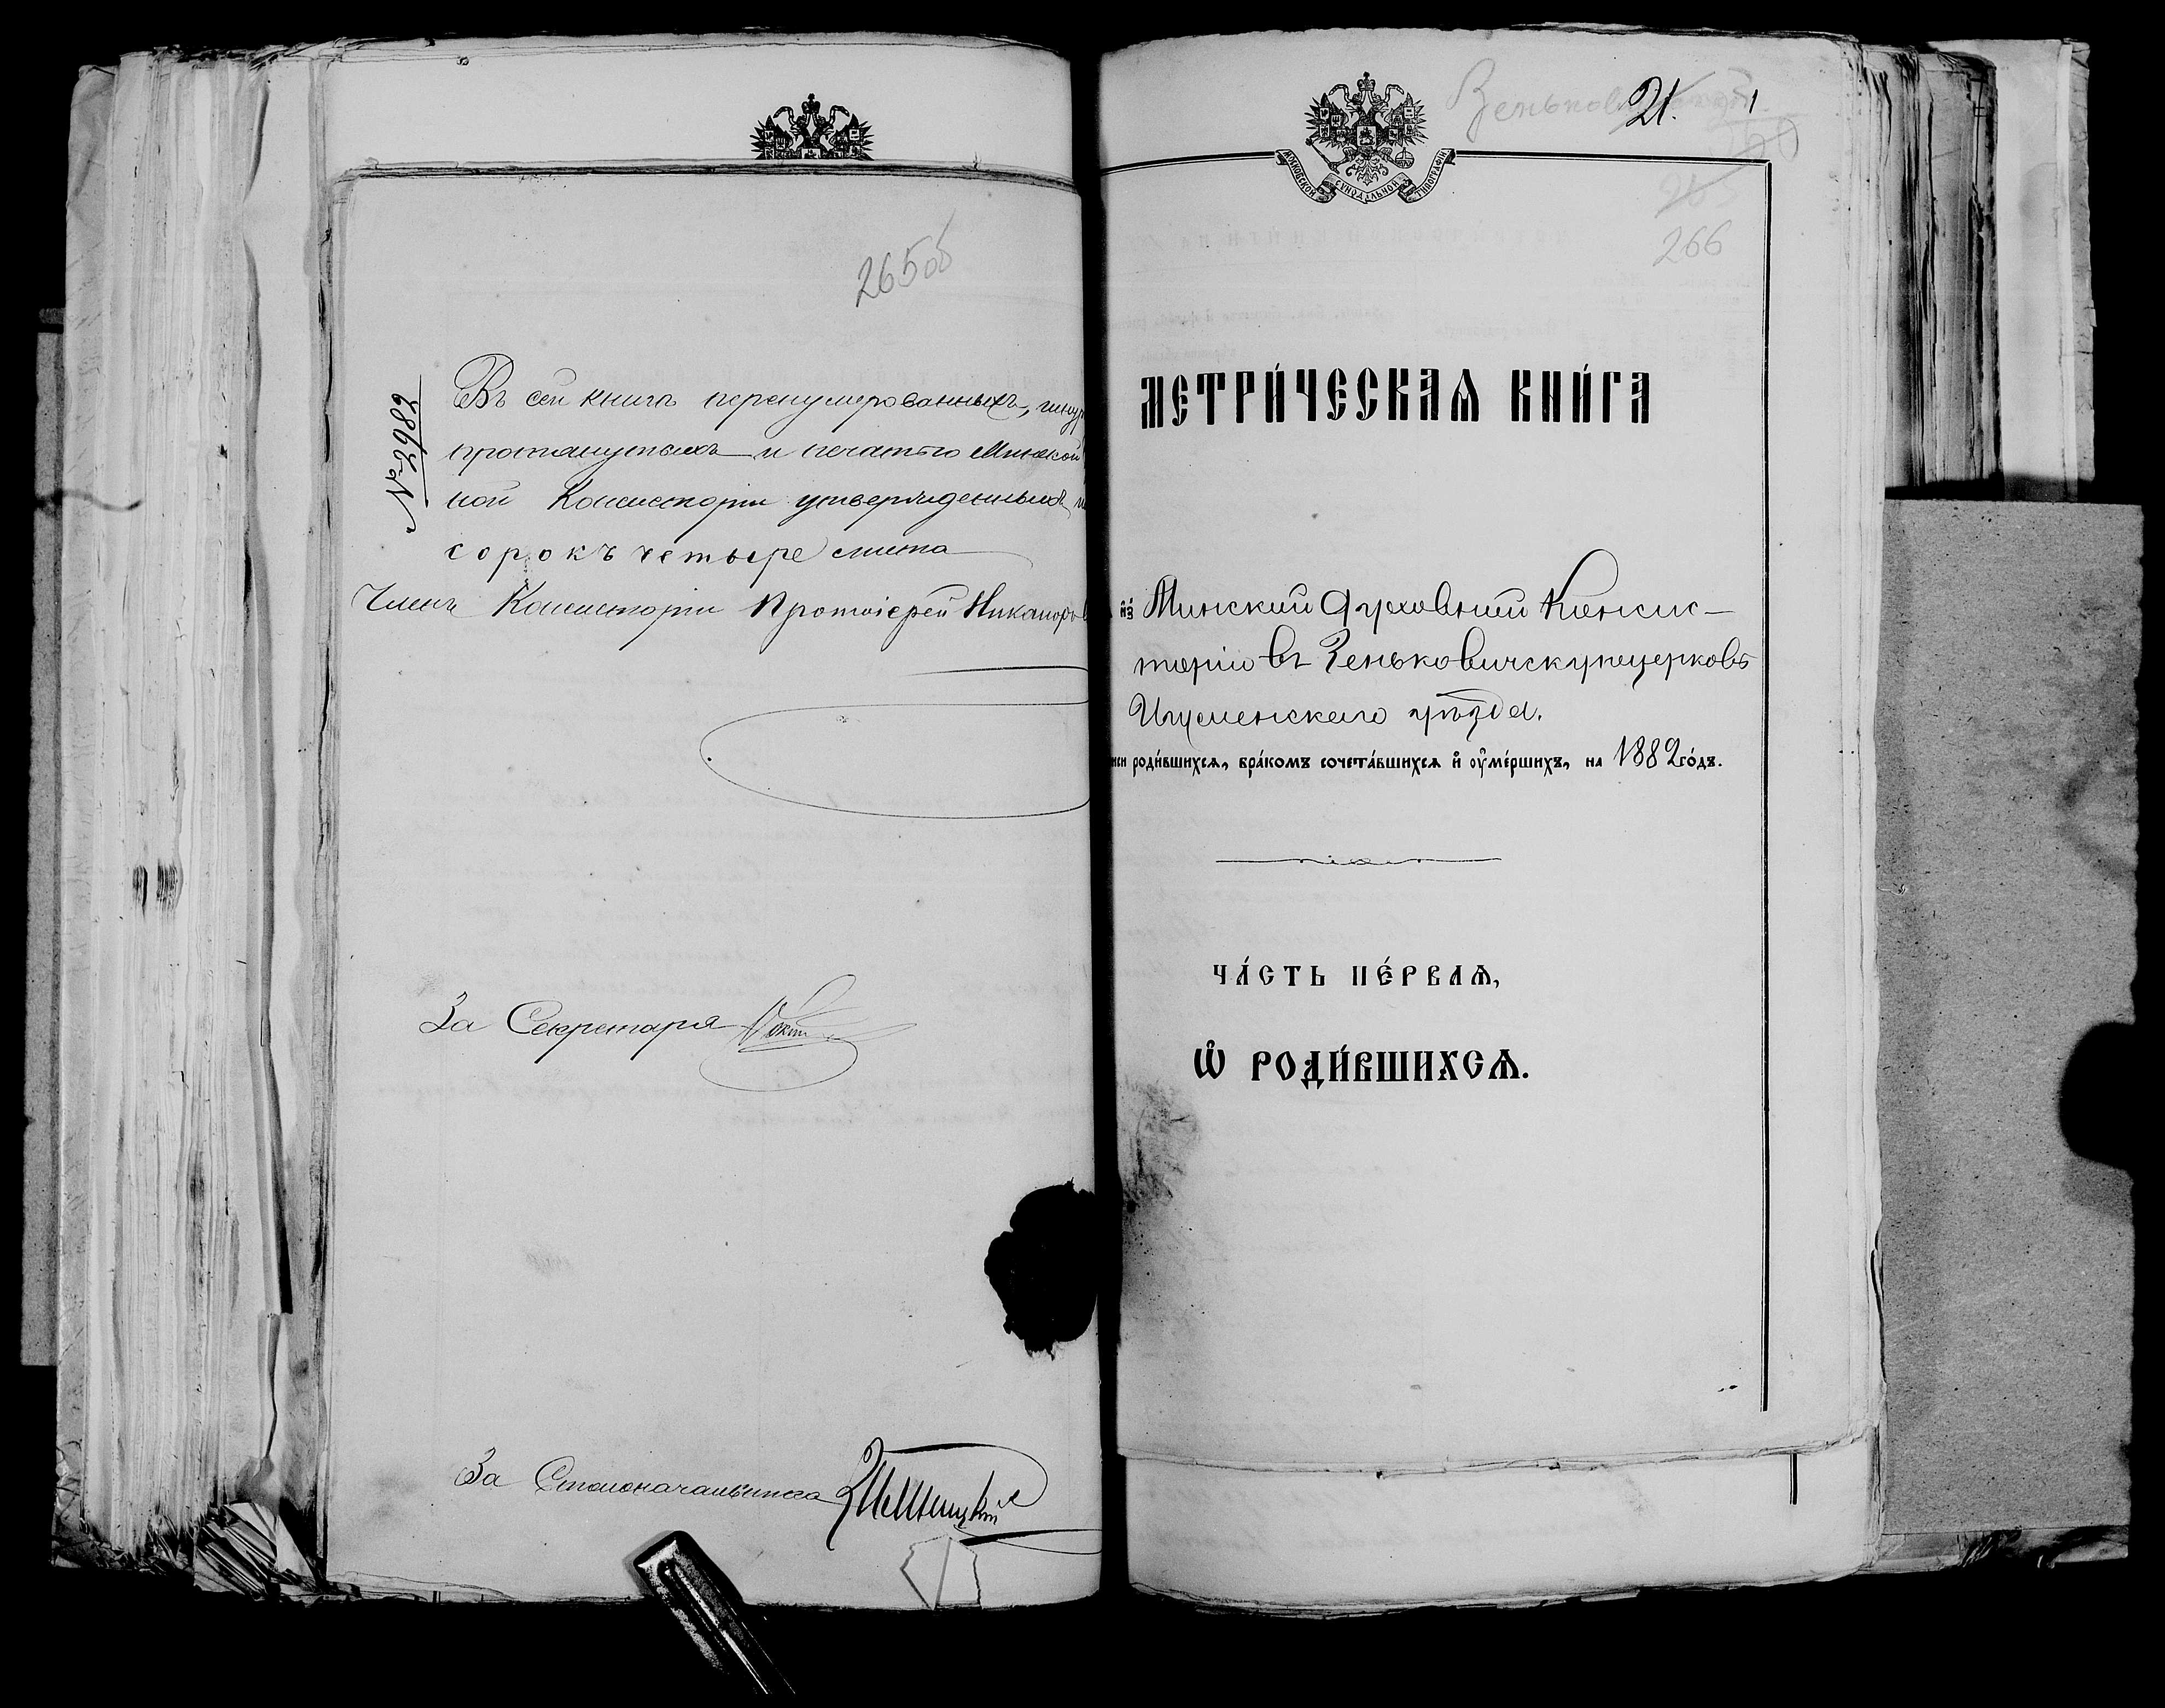 265об
№ 2982
Въ сей книгѣ перенумерованныхъ, шнур
протянутыхъ и печатью Минской
ной Консисторіи утвержденныхъ
сорокъ четыре листа
Членъ Консисторіи Протоіерей Никаноръ
За Секретаря
За Столоначальника
21.
1
266
МОСКОВСКОЙ СѴНОДАЛЬНОЙ ТИПОГРАФІИ
МЕТРИ́ЧЕСКАѦ КНИ́ГА
и҆з̾ Минской Духовной Консис-
торіи въ Зеньковичскую церковь
Игуменскаго уѣзда.
иси роди́вшихсѧ, бра́комъ сочета́вшихсѧ и҆ ᲂу҆ме́ршихъ, на 1882 го́дъ.
ЧА́СТЬ ПЕ́РВАѦ,
Ѡ҆ РОДИ́ВШИХСѦ.